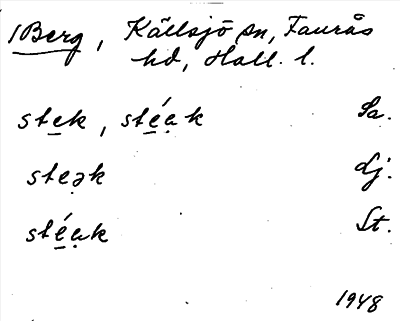 1 Berg, Källsjö sn, Faurås
hd, Hall. l.
ste̲k, sté̲ạk Sa.
steə̣k dj.
sté̲ạk St.
1948